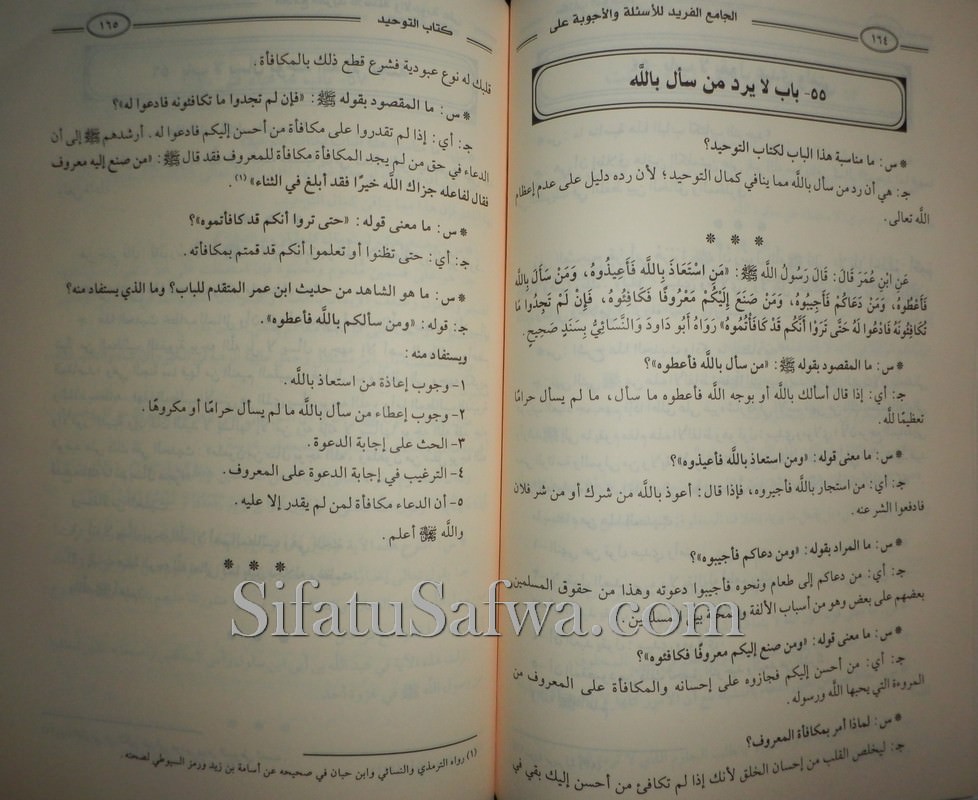 الجامع الفريد للأسئلة والأجوبة على
١٦٤
٥٥- باب لا يرد من سأل بالله
* س: ما مناسبة هذا الباب لكتاب التوحيد؟
جـ: هي أن رد من سأل بالله مما ينافي كمال التوحيد؛ لأن رده دليل على عدم إعظام
الله تعالى.
* * *
عَنِ ابْنِ عُمَرَ قَالَ: قَالَ رَسُولُ اللَّهِ ﷺ: «مَنِ اسْتَعَاذَ بِاللَّهِ فَأَعِيذُوهُ، وَمَنْ سَأَلَ بِاللَّهِ
فَأَعْطُوهُ، وَمَنْ دَعَاكُمْ فَأَجِيبُوهُ، وَمَنْ صَنَعَ إِلَيْكُمْ مَعْرُوفًا فَكَافِئُوهُ، فَإِنْ لَمْ تَجِدُوا مَا
تُكَافِئُونَهُ فَادْعُوا لَهُ حَتَّى تَرَوْا أَنَّكُم قَدْ كَافَأْتُمُوهُ» رَوَاهُ أَبُو دَاودَ وَالنَّسَائِيُّ بِسَنَدٍ صَحِيحٍ.
* س: ما المقصود بقوله ﷺ: «من سأل بالله فأعطوه»؟
جـ: أي: إذا قال أسألك بالله أو بوجه الله فأعطوه ما سأل، ما لم يسأل حرامًا
تعظيمًا لله.
* س: ما معنى قوله: «ومن استعاذ بالله فأعيذوه»؟
جـ: أي: من استجار بالله فأجيروه، فإذا قال: أعوذ بالله من شرك أو من شر فلان
فادفعوا الشر عنه.
* س: ما المراد بقوله: «ومن دعاكم فأجيبوه»؟
جـ: أي: من دعاكم إلى طعام ونحوه فأجيبوا دعوته وهذا من حقوق المسلمين
بعضهم على بعض وهو من أسباب الألفة والمحبة بين المسلمين.
* س: ما معنى قوله: «ومن صنع إليكم معروفًا فكافئوه»؟
جـ: أي: من أحسن إليكم فجازوه على إحسانه والمكافأة على المعروف من
المروءة التي يحبها الله ورسوله.
* س: لماذا أمر بمكافأة المعروف؟
جـ: ليخلص القلب من إحسان الخلق لأنك إذا لم تكافئ من أحسن إليك بقي في
كتاب التوحيد
١٦٥
قلبك له نوع عبودية فشرع قطع ذلك بالمكافأة.
* س: ما المقصود بقوله ﷺ: «فإن لم تجدوا ما تكافئونه فادعوا له»؟
جـ: أي: إذا لم تقدروا على مكافأة من أحسن إليكم فادعوا له. أرشدهم ﷺ إلى أن
الدعاء في حق من لم يجد المكافأة مكافأة للمعروف فقد قال ﷺ: «من صنع إليه معروف
فقال لفاعله جزاك الله خيرًا فقد أبلغ في الثناء» (١).
* س: ما معنى قوله: «حتى تروا أنكم قد كافأتموه»؟
جـ: أي: حتى تظنوا أو تعلموا أنكم قد قمتم بمكافأته.
* س: ما هو الشاهد من حديث ابن عمر المتقدم للباب؟ وما الذي يستفاد منه؟
جـ: قوله: «ومن سألكم بالله فأعطوه».
ويستفاد منه:
١- وجوب إعاذة من استعاذ بالله.
٢- وجوب إعطاء من سأل بالله ما لم يسأل حرامًا أو مكروهًا.
٣- الحث على إجابة الدعوة.
٤- الترغيب في إجابة الدعوة على المعروف.
٥- أن الدعاء مكافأة لمن لم يقدر إلا عليه.
والله ﷻ أعلم.
* * *
(١) رواه الترمذي والنسائي وابن حبان في صحيحه عن أسامة بن زيد ورمز السيوطي لصحته.
SifatuSafwa.com